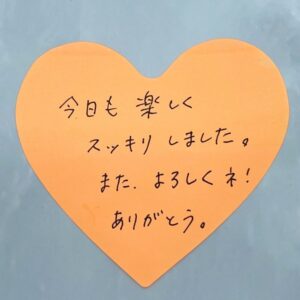 今日も 楽しく
スッキリ しました。
また、よろしくネ!
ありがとう。